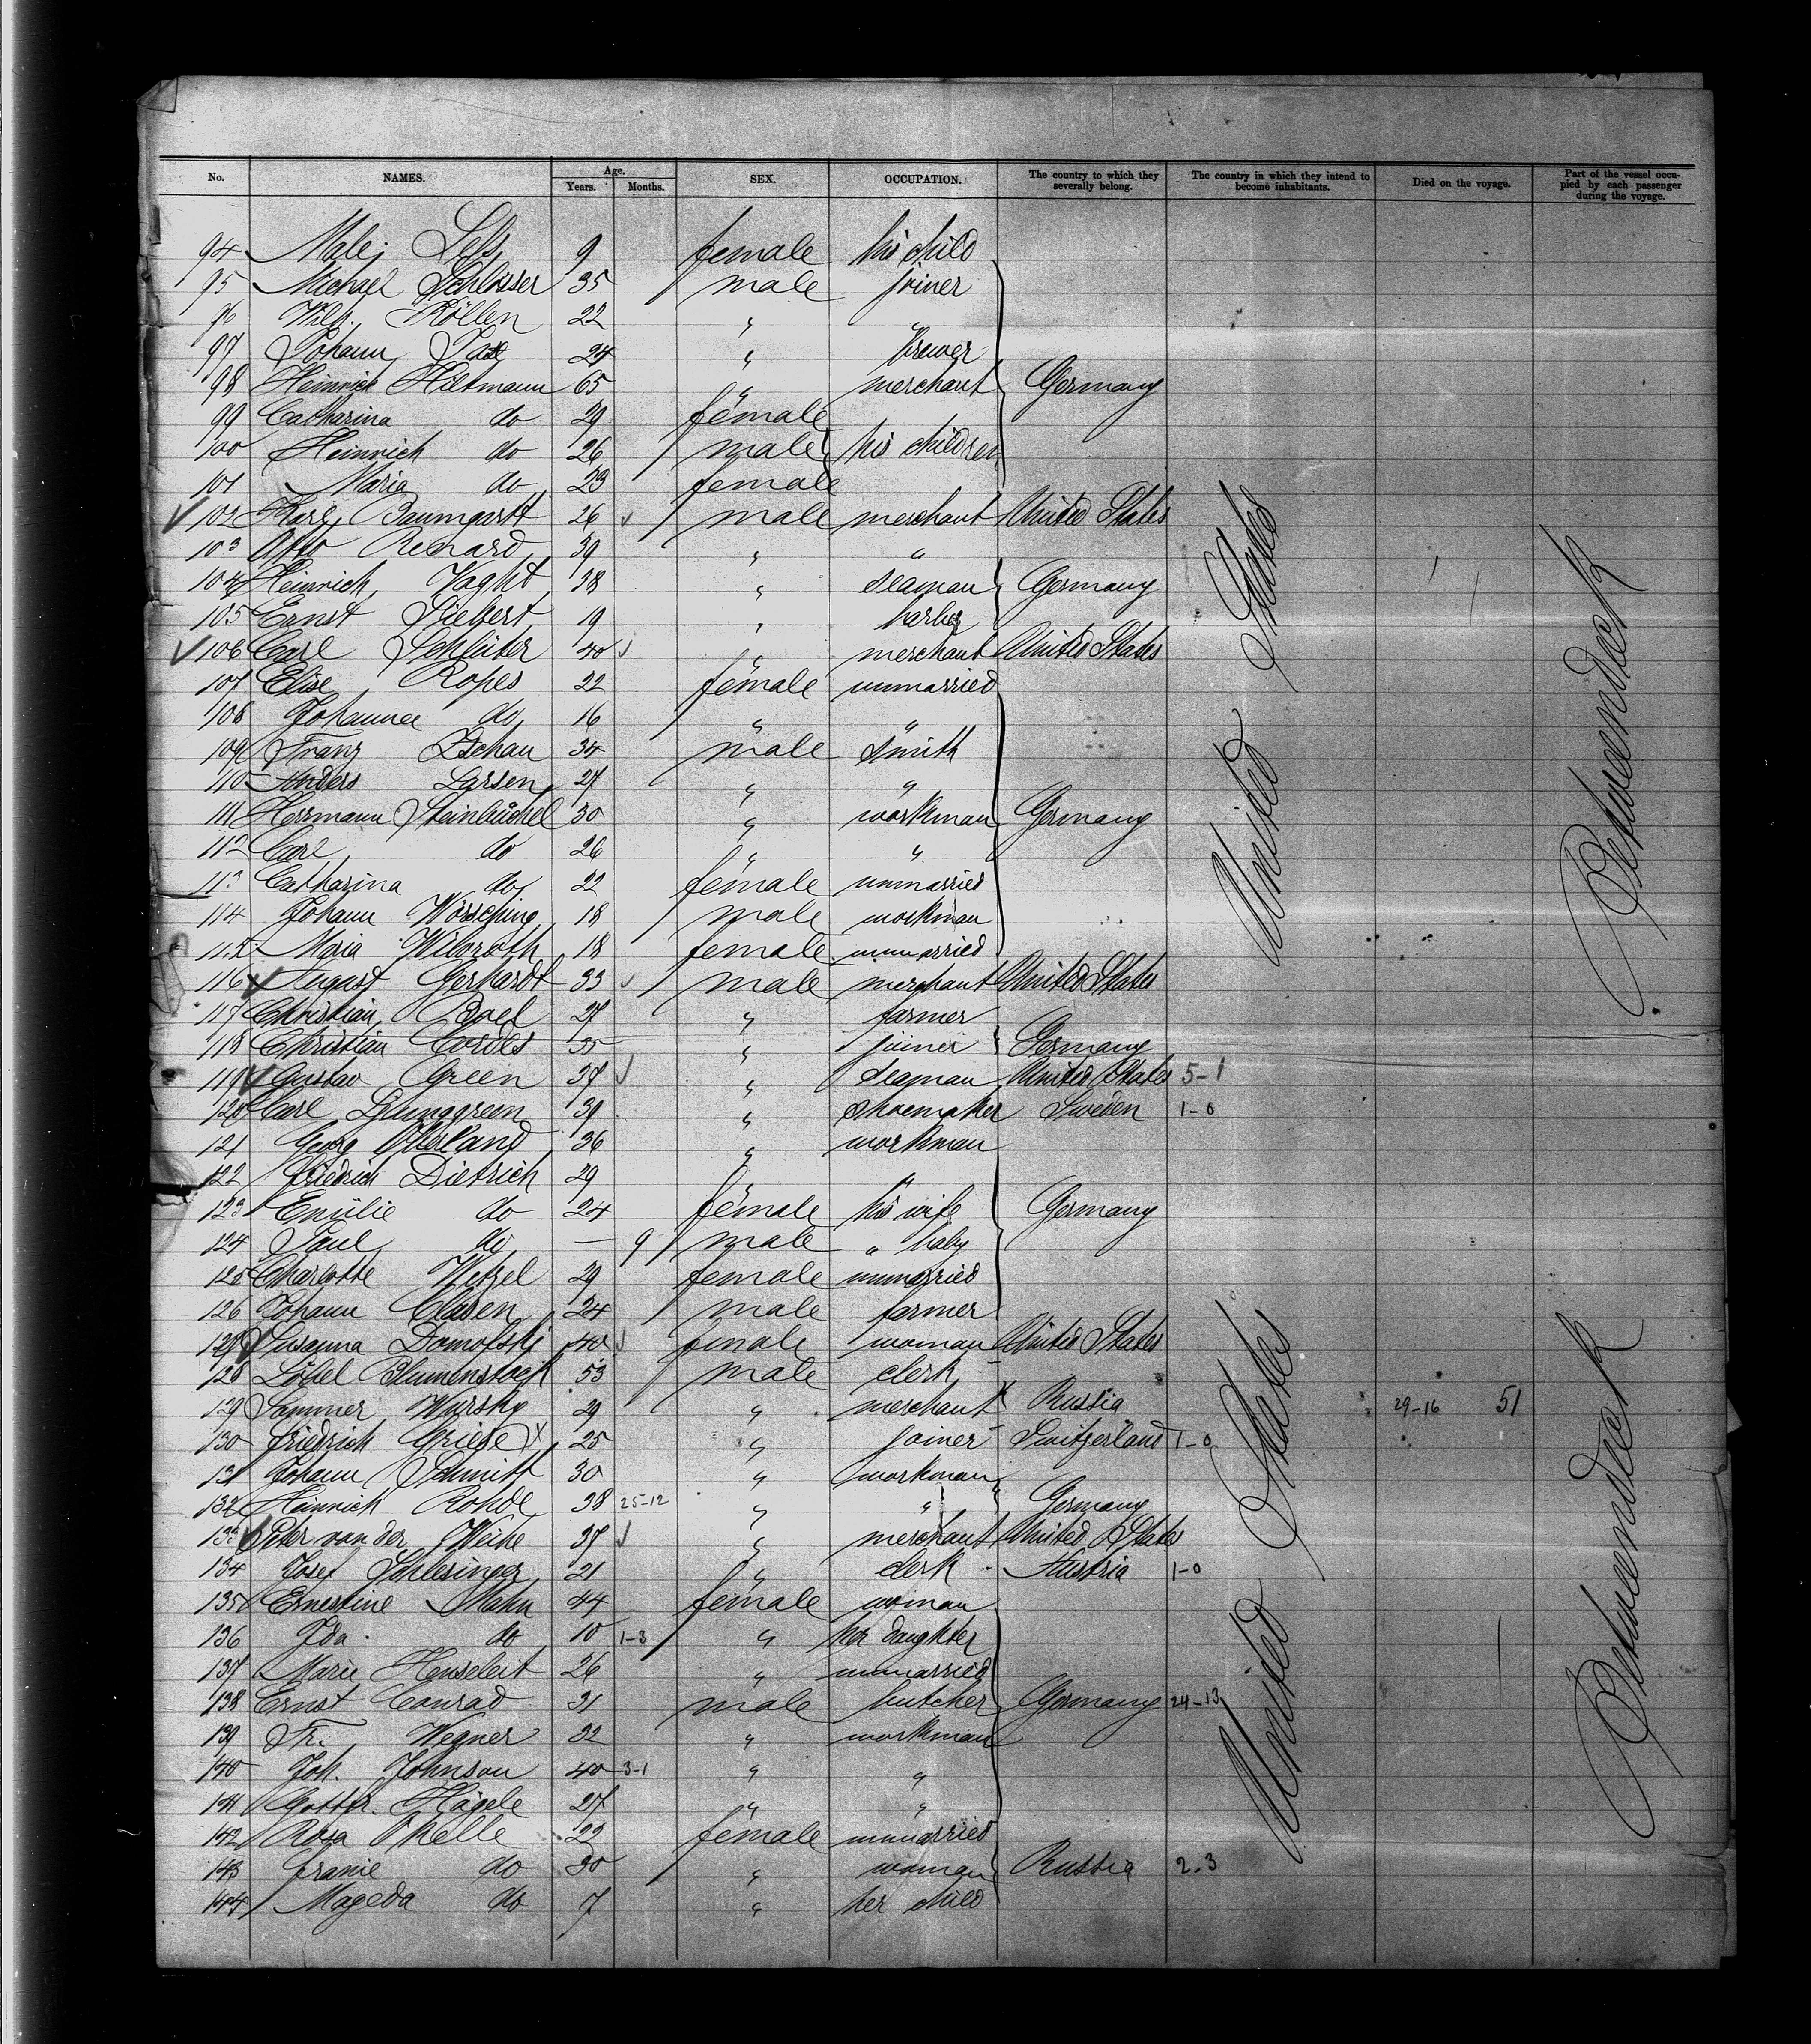 No. NAMES. Age. Years. Months. SEX. OCCUPATION. The country to which they severally belong. The country in which they intend to become inhabitants. Died on the voyage. Part of the vessel occupied by each passenger during the voyage.
94 9 female his child
95 Michael Schlosser 35 male joiner
96 Wilh. Röllen 22 " "
97 Johann 24 " brewer
98 Heinrich Hiltmann 65 " merchant Germany
99 Catharina do 29 female
100 Heinrich do 26 male his children
101 Maria do 23 female
102 Karl Baumgartt 26 male merchant United States
103 Otto Renard 39 " "
104 Heinrich Voght 38 " seaman Germany
105 Ernst Siebert 19 " barber
106 Carl Schlüter 40 " merchant United States
107 Elise Ropes 22 female unmarried
108 Johanna do 16 " "
109 Franz Zschau 34 male smith
110 Anders Larsen 27 " "
111 Herrmann Steinbüchel 30 " workman Germany
112 Carl do 26 " "
113 Catharina do 22 female unmarried
114 Johann Worsching 18 male workman
115 Maria Wilvroth 18 female unmarried
116 August Gerhardt 33 male merchant United States
117 Christian Boel 27 " farmer
118 Christian Cordes 35 " joiner Germany
119 Gustav Green 37 " seaman United States 5-1
120 Carl Ljunggreen 39 " shoemaker Sweden 1-0
121 Georg Oberland 36 " workman
122 Friedrich Dietrich 29 " "
123 Emilie do 24 female his wife Germany
124 Paul do — 9 male " baby
125 Charlotte Wetzel 29 female unmarried
126 Johann Clasen 24 male farmer
127 Susanna Domofski 40 female woman United States
128 Löbel Blumenstock 53 male clerk
129 Sammer Wursky 29 " merchant Russia 29-16 51
130 Friedrich Griefe X 25 " joiner Switzerland 1-0
131 Johann Schmitt 30 " workman
132 Heinrich Rohde 38 25-12 " " Germany
133 Peter van der Weihe 37 " merchant United States
134 Josef Schlesinger 21 " clerk Austria 1-0
135 Ernestine Mahn 44 female woman
136 Ida do 10 1-3 " her daughter
137 Marie Henseleit 26 " unmarried
138 Ernst Conrad 31 male butcher Germany 24-13
139 Fr. Wegner 22 " workman
140 Joh. Johnson 40 3-1 " "
141 Gottfr. Hägele 27 " "
142 Rosa Okelle 22 female unmarried
143 Franie do 30 " woman Russia 2-3
144 Mageda do 7 " her child
United States
United States
Betweendeck
Betweendeck